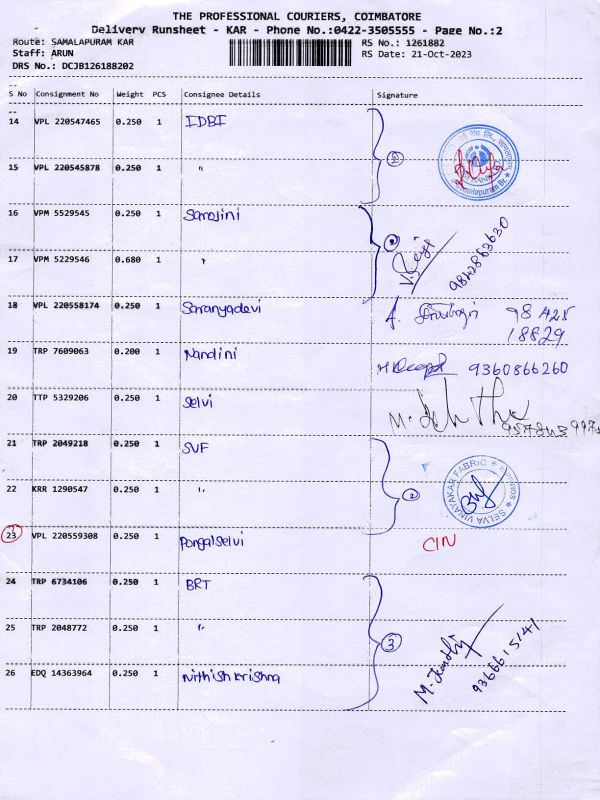 THE PROFESSIONAL COURIERS, COIMBATORE
Delivery Runsheet - KAR - Phone No.:0422-3505555 - Page No.:2
Route: SAMALAPURAM KAR RS No.: 1261882
Staff: ARUN RS Date: 21-Oct-2023
DRS No.: DCJB126188202
S No Consignment No Weight PCS Consignee Details Signature
14 VPL 220547465 0.250 1 IDBI
15 VPL 220545878 0.250 1 "
②
16 VPM 5529545 0.250 1 Sarojini
17 VPM 5229546 0.680 1 "
18 VPL 220558174 0.250 1 Saranyadevi 98 425
18829
19 TRP 7609063 0.200 1 Nandini 9360866260
20 TTP 5329206 0.250 1 Selvi
21 TRP 2049218 0.250 1 SVF
SELVA VINAYAKAR FABRIC
22 KRR 1290547 0.250 1 "
②
23 VPL 220559308 0.250 1 Pongalselvi CIN
24 TRP 6734106 0.250 1 BRT
25 TRP 2048772 0.250 1 "
③
9366615141
26 EDQ 14363964 0.250 1 Nithishkrishna